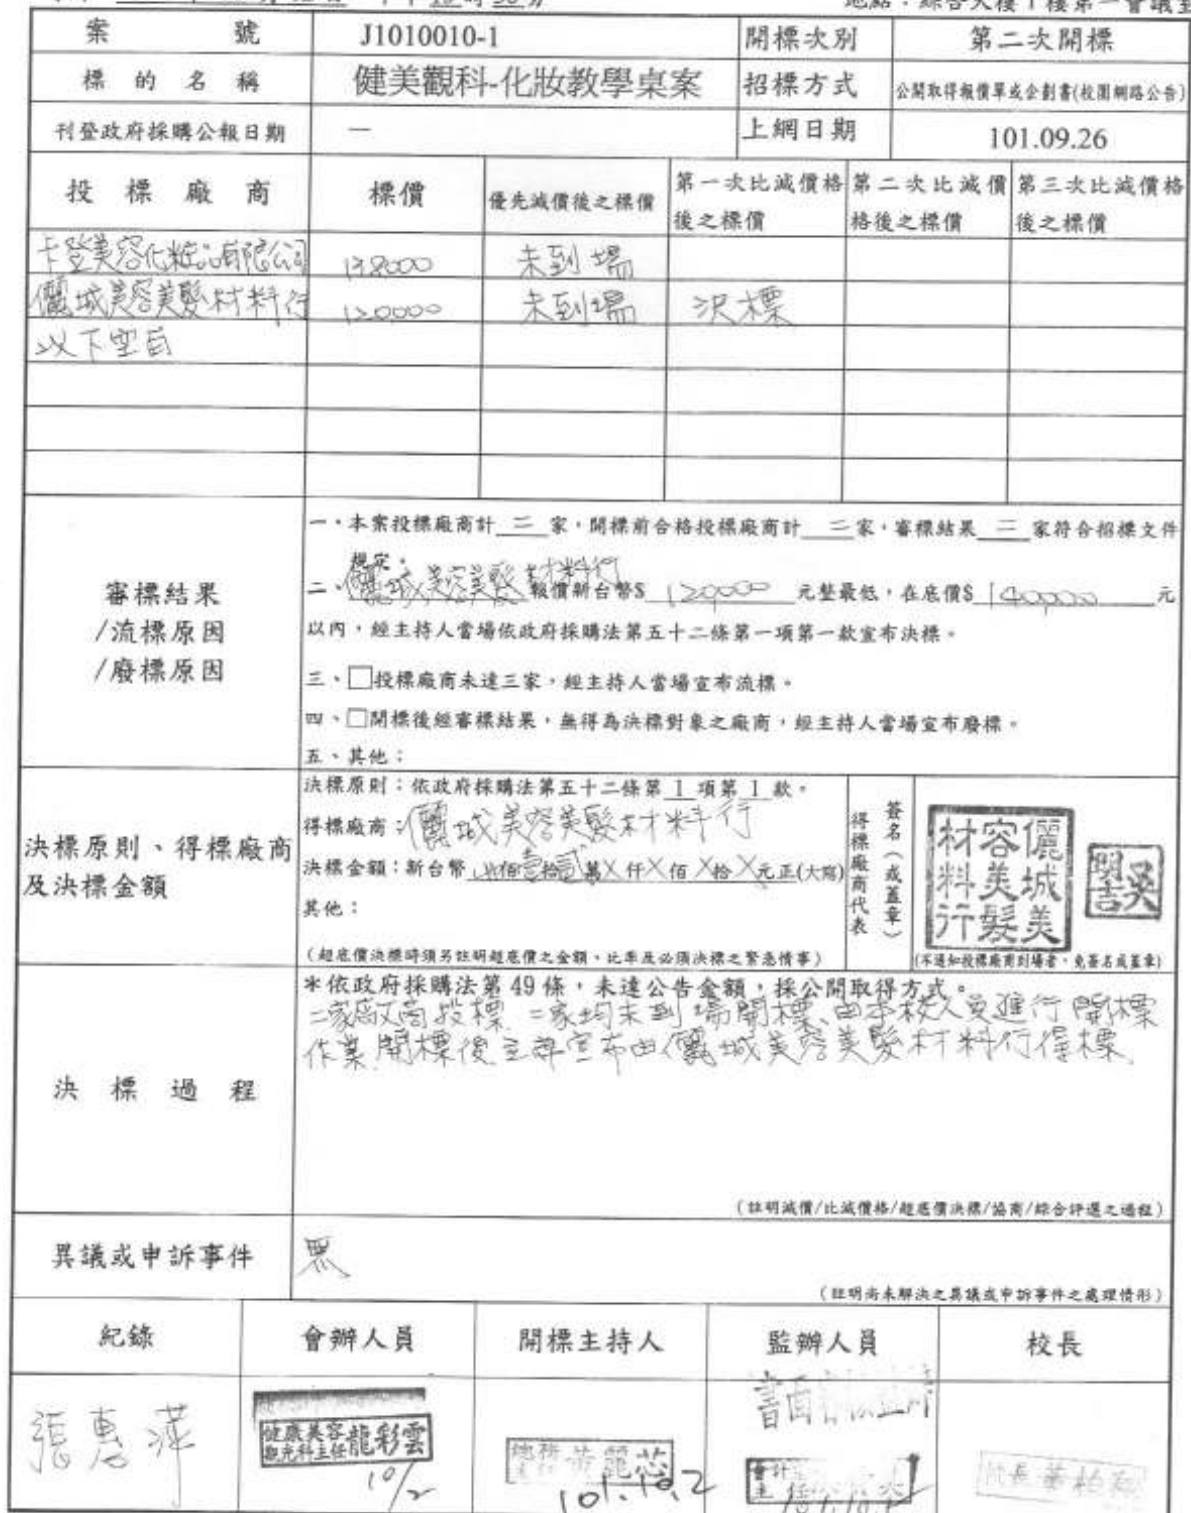 地點：綜合大樓1樓第一會議室
案號 J1010010-1 開標次別 第二次開標
標的名稱 健美觀科-化妝教學桌案 招標方式 公開取得報價單或企劃書(校園網路公告)
刊登政府採購公報日期 — 上網日期 101.09.26
投標廠商 標價 優先減價後之標價 第一次比減價格後之標價 第二次比減價格後之標價 第三次比減價格後之標價
卡登美容化粧品有限公司 138000 未到場
儷城美容美髮材料行 120000 未到場 決標
以下空白
審標結果
/流標原因
/廢標原因
一、本案投標廠商計 二 家，開標前合格投標廠商計 二 家，審標結果 二 家符合招標文件
規定。
二、儷城美容美髮材料行 報價新台幣$ 120000 元整最低，在底價$ 140000 元
以內，經主持人當場依政府採購法第五十二條第一項第一款宣布決標。
三、□投標廠商未達三家，經主持人當場宣布流標。
四、□開標後經審標結果，無得為決標對象之廠商，經主持人當場宣布廢標。
五、其他：
決標原則、得標廠商
及決標金額
決標原則：依政府採購法第五十二條第 1 項第 1 款。
得標廠商：儷城美容美髮材料行
決標金額：新台幣 佰壹拾貳萬X仟X佰X拾X元正(大寫)
其他：
(超底價決標時須另註明超底價之金額、比率及必須決標之緊急情事)
得標廠商代表
簽名(或蓋章)
儷城美容美髮材料行
吳明吉
(不通知投標廠商到場者，免簽名或蓋章)
決標過程
*依政府採購法第49條，未達公告金額，採公開取得方式。
二家廠商投標，二家均未到場開標，由本校人員進行開標
作業，開標後主辦宣布由儷城美容美髮材料行得標。
(註明減價/比減價格/超底價決標/協商/綜合評選之過程)
異議或申訴事件 無
(註明尚未解決之異議或申訴事件之處理情形)
紀錄 會辦人員 開標主持人 監辦人員 校長
張惠萍
健康美容觀光科主任龍彩雲
10/2
黃麗芯
101.10.2
會計主任